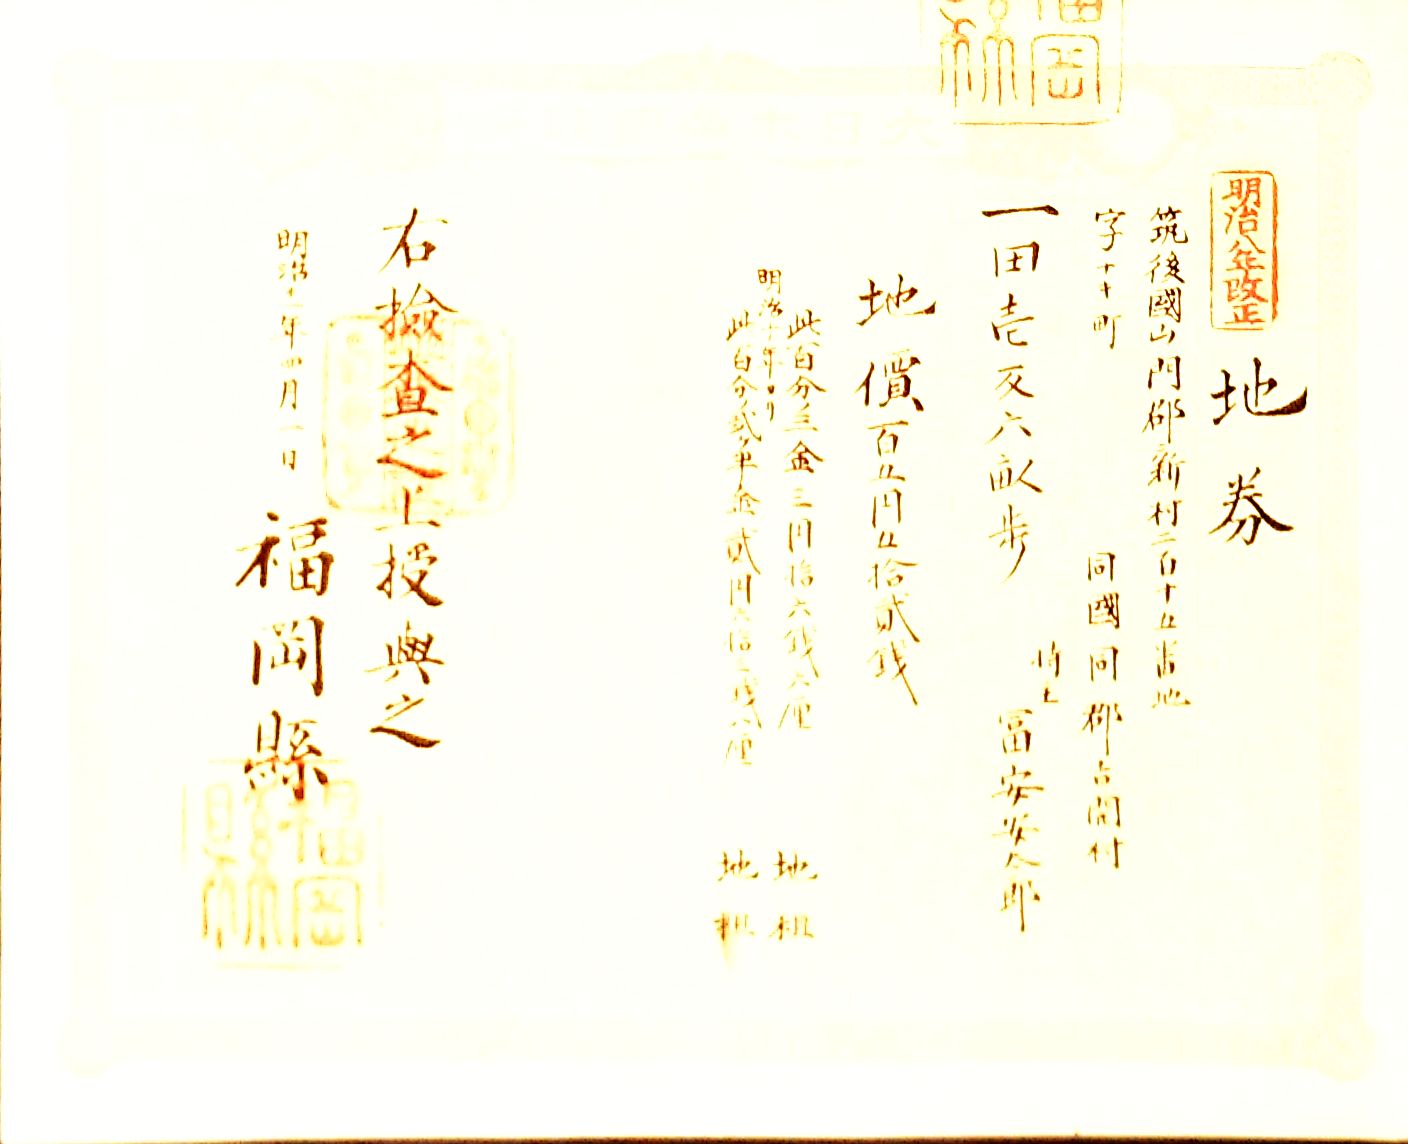 明治八年改正
地券
筑後國山門郡新村二百十五番地
字十十町
同國同郡占間村
一田壱反六畝歩
持主 冨安安太郎
地價百五円五拾貳銭
此百分三金三円拾六銭六厘 地租
明治十年ヨリ
此百分貳ヶ半金貳円六拾三銭八厘 地租
右檢査之上授與之
明治十一年四月一日
福岡縣